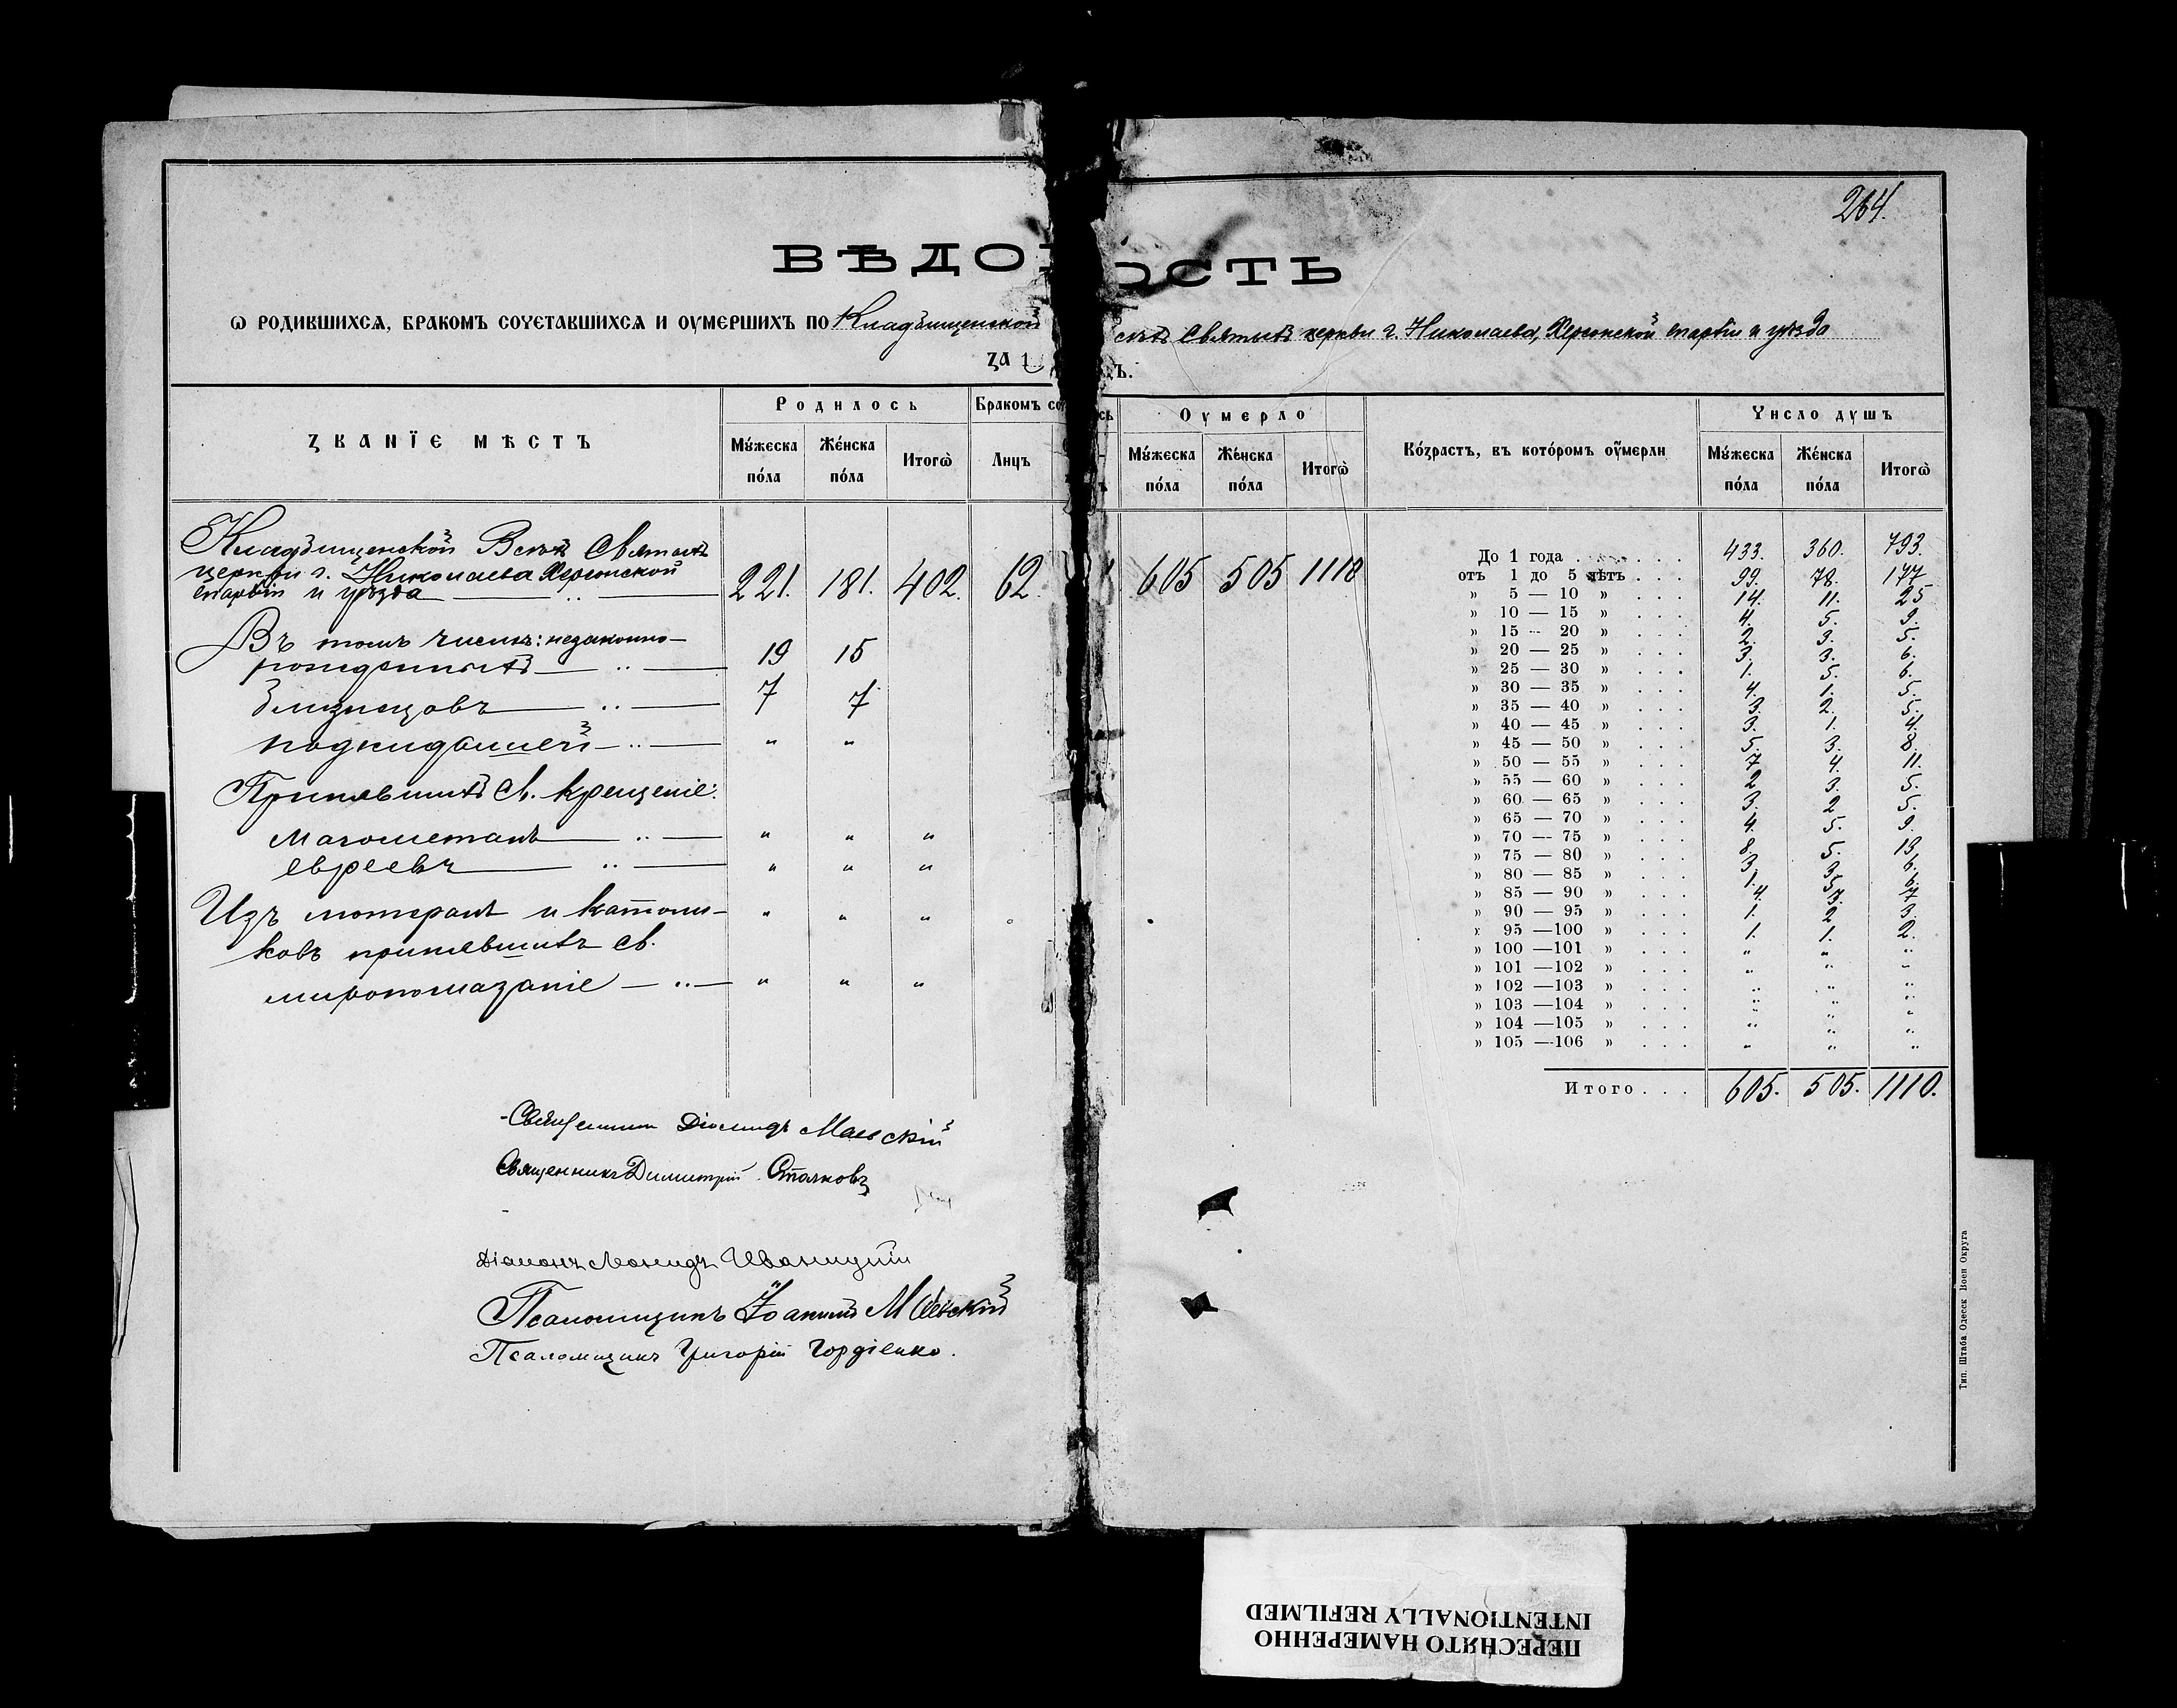 264.
ВѢДО ОСТЬ
Ѡ РОДИВШИХСЯ, БРАКОМЪ СОЧЕТАВШИХСЯ И ОУМЕРШИХЪ ПО Кладбищенской Святыхъ церкви г. Николаева, Херсонской епархіи и уѣзда
ZA 1
ZВАНЇЕ МѢСТЪ Родилось Бракомъ со сь Оумерло Возрастъ, въ которомъ оумерли Число душъ
Мужеска пола Женска пола Итогѡ Лицъ Мужеска пола Женска пола Итогѡ Мужеска пола Женска пола Итогѡ
Кладбищенской Всѣхъ Святыхъ
церкви г. Николаева Херсонской
епархіи и уѣзда 221. 181. 402. 62. 605 505 1110
Въ томъ числѣ: незаконно-
рожденныхъ 19 15
близнецовъ 7 7
подкидышей " "
Принявшихъ Св. крещеніе:
магометанъ " " "
евреевъ " " "
Изъ лютеранъ и католи- " " "
ковъ принявшихъ св.
миропомазаніе " " "
До 1 года . . . . . . 433. 360. 793.
отъ 1 до 5 лѣтъ . . . 99. 78. 177
» 5 — 10 » . . . 14. 11. 25
» 10 — 15 » . . . 4. 5. 9.
» 15 — 20 » . . . 2. 3. 5.
» 20 — 25 » . . . 3. 3. 6.
» 25 — 30 » . . . 1. 5. 6.
» 30 — 35 » . . . 4. 1. 5.
» 35 — 40 » . . . 3. 2. 5.
» 40 — 45 » . . . 3. 1. 4.
» 45 — 50 » . . . 5. 3. 8.
» 50 — 55 » . . . 7 4. 11.
» 55 — 60 » . . . 2 3. 5.
» 60 — 65 » . . . 3. 2 5.
» 65 — 70 » . . . 4. 5. 9.
» 70 — 75 » . . . 8. 5. 13.
» 75 — 80 » . . . 3 3. 6.
» 80 — 85 » . . . 1. 5. 6.
» 85 — 90 » . . . 4. 3. 7
» 90 — 95 » . . . 1. 2 3.
» 95 —100 » . . . 1. 1. 2.
» 100 —101 » . . . " " "
» 101 —102 » . . . " " "
» 102 —103 » . . . " " "
» 103 —104 » . . . " " "
» 104 —105 » . . . " " "
» 105 —106 » . . . " " "
Итого . . . 605. 505. 1110.
Священникъ Діомидъ Маевскій
Священникъ Димитрій Стояновъ
Діаконъ Леонидъ Иваницкій
Псаломщикъ Іоакимъ Маевскій
Псаломщикъ Григорій Гордіенко.
Тип. Штаба Одесск Воен Округа
ПЕРЕСНЯТО НАМЕРЕННО
INTENTIONALLY REFILMED